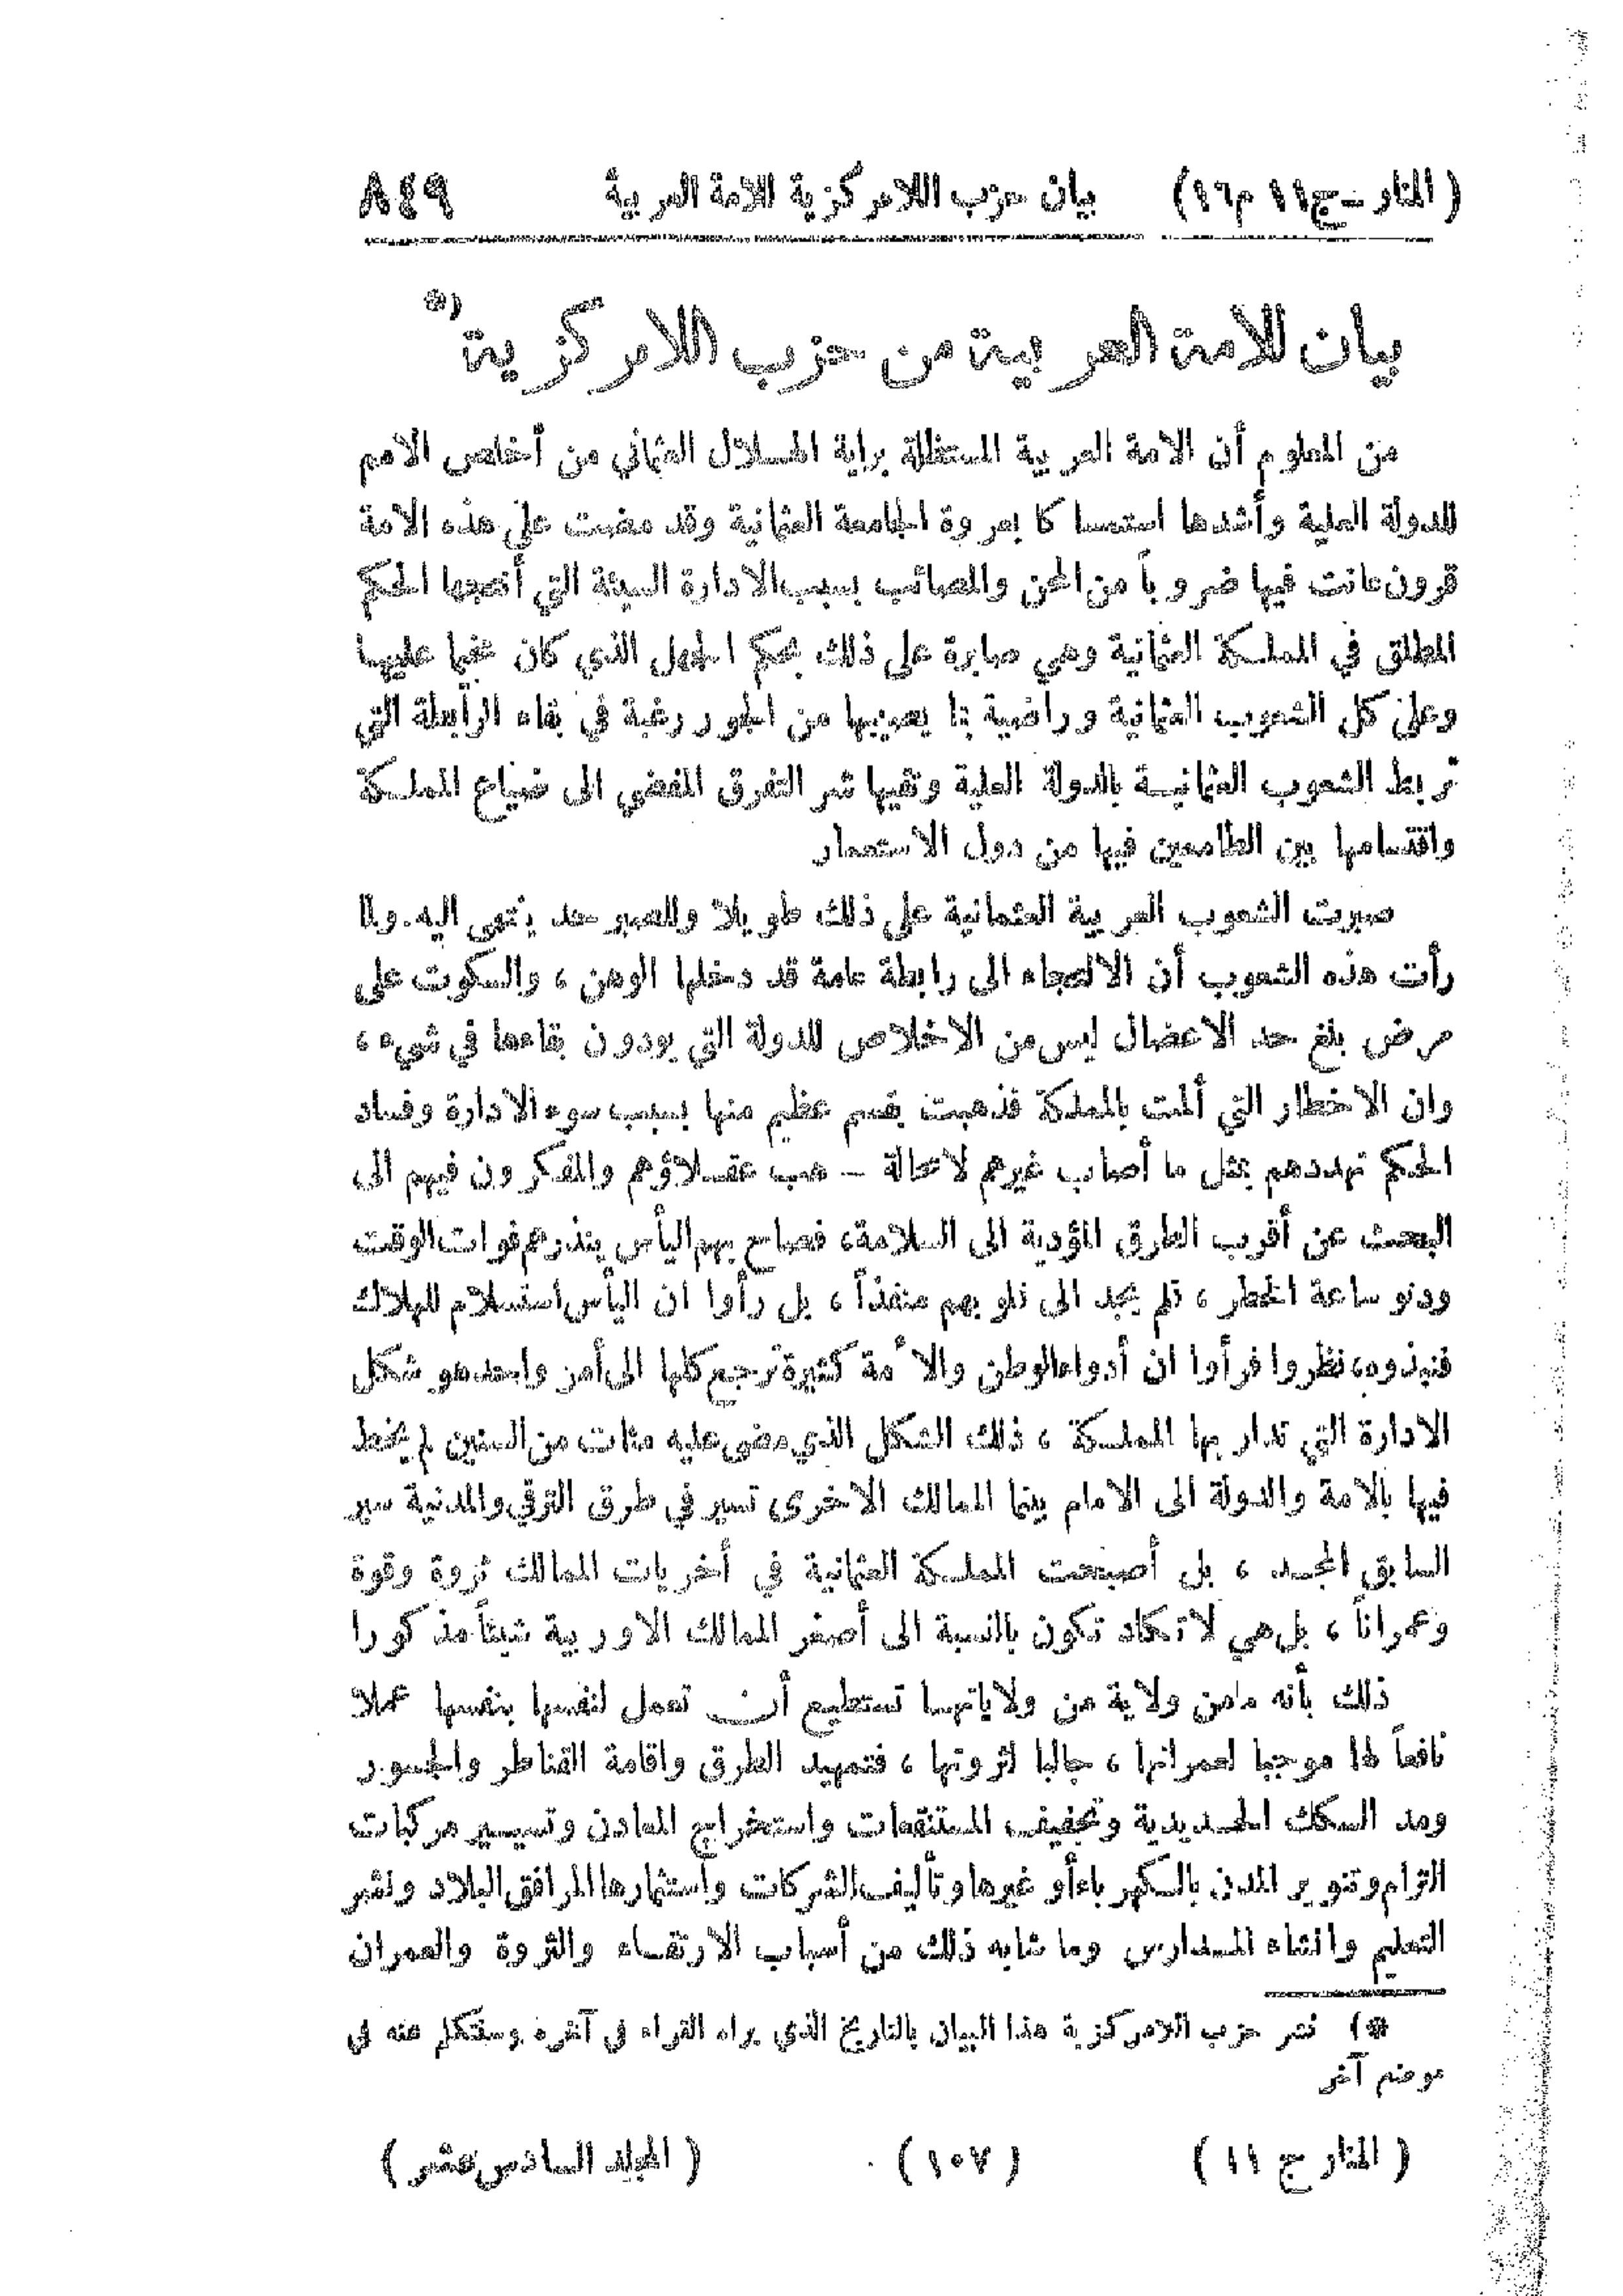 (المنار – ج١١ م١٦) بيان حزب اللامركزية للامة العربية ٨٤٩
بيان للامة العربية من حزب اللامركزية (*
من المعلوم أن الامة العربية المستظلة براية الهلال العثماني من أخلص الامم
للدولة العلية وأشدها استمساكا بعروة الجامعة العثمانية وقد مضت على هذه الامة
قرون عانت فيها ضروباً من المحن والمصائب بسبب الادارة السيئة التي أنتجها الحكم
المطلق في المملكة العثمانية وهي صابرة على ذلك بحكم الجهل الذي كان مخيما عليها
وعلى كل الشعوب العثمانية وراضية بما يصيبها من الجور رغبة في بقاء الرابطة التي
تربط الشعوب العثمانية بالدولة العلية وتقيها شر التفرق المفضي الى ضياع المملكة
واقتسامها بين الطامعين فيها من دول الاستعمار
صبرت الشعوب العربية العثمانية على ذلك طويلا وللصبر حد ينتهى اليه. ولما
رأت هذه الشعوب أن الالتجاء الى رابطة عامة قد دخلها الوهن ، والسكوت على
مرض بلغ حد الاعضال ليس من الاخلاص للدولة التي يودون بقاءها في شيء ،
وان الاخطار التي ألمت بالمملكة فذهبت بقسم عظيم منها بسبب سوء الادارة وفساد
الحكم تهددهم بمثل ما أصاب غيرهم لا محالة – هب عقلاؤهم والمفكرون فيهم الى
البحث عن أقرب الطرق المؤدية الى السلامة، فصاح بهم اليأس ينذرهم فوات الوقت
ودنو ساعة الخطر ، فلم يجد الى قلوبهم منفذاً ، بل رأوا ان اليأس استسلام للهلاك
فنبذوه، نظروا فرأوا ان أدواء الوطن والأمة كثيرة ترجع كلها الى أمر واحد هو شكل
الادارة التي تدار بها المملكة ، ذلك الشكل الذي مضى عليه مئات من السنين لم يخط
فيها بالامة والدولة الى الامام بينما الممالك الاخرى تسير في طرق الترقي والمدنية سير
السابق المجد ، بل أصبحت المملكة العثمانية في أخريات الممالك ثروة وقوة
وعمراناً ، بل هي لا تكاد تكون بالنسبة الى أصغر الممالك الاوربية شيئاً مذكورا
ذلك بأنه ما من ولاية من ولاياتها تستطيع أن تعمل لنفسها بنفسها عملا
نافعاً لها موجبا لعمرانها ، جالبا لثروتها ، فتمهيد الطرق واقامة القناطر والجسور
ومد السكك الحديدية وتجفيف المستنقعات واستخراج المعادن وتسيير مركبات
الترام وتنوير المدن بالكهرباء أو غيرها وتأليف الشركات واستثمارها لمرافق البلاد ونشر
التعليم وانشاء المدارس وما شابه ذلك من أسباب الارتقاء والثروة والعمران
*) نشر حزب اللامركزية هذا البيان بالتاريخ الذي يراه القراء في آخره وسنتكلم عنه في
موضع آخر
( المنار ج ١١ ) ( ١٠٧ ) ( المجلد السادس عشر )